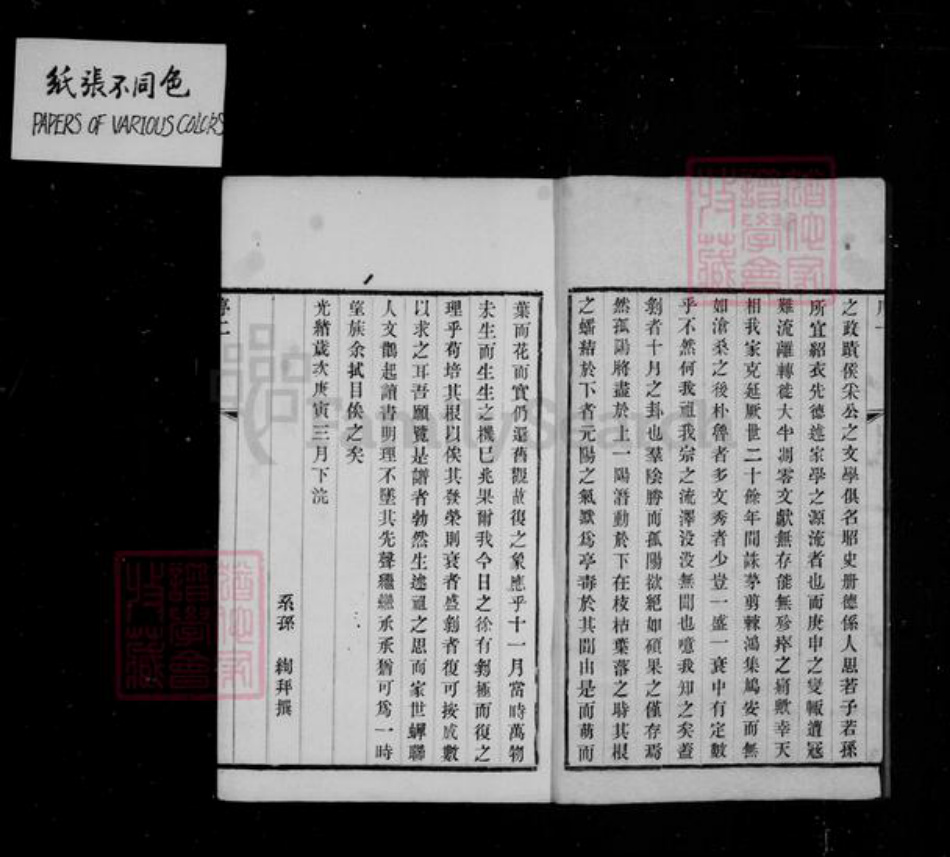 紙張不同色
PAPERS OF VARIOUS COLORS
之政蹟侯采公之文學俱名昭史册德係人思若子若孫
所宜紹衣先德述家學之源流者也而庚申之變輒遭寇
難流離轉徙大半凋零文獻無存能無殄瘁之痛歟幸天
相我家克延厥世二十餘年間誅茅剪棘鴻集鳩安而無
如滄桑之後朴魯者多文秀者少豈一盛一衰中有定數
乎不然何我祖我宗之流澤没没無聞也噫我知之矣蓋
剝者十月之卦也羣陰勝而孤陽欲絕如碩果之僅存焉
然孤陽將盡於上一陽潛動於下在枝枯葉落之時其根
之蟠結於下者元陽之氣默爲亭毒於其間由是而萌而
葉而花而實仍還舊觀故復之象應乎十一月當時萬物
未生而生生之機已兆果爾我今日之徐有剝極而復之
理乎苟培其根以俟其發榮則衰者盛剝者復可按成數
以求之耳吾願覽是譜者勃然生述祖之思而家世蟬聯
人文鵲起讀書明理不墜其先聲繼繼承承猶可爲一時
望族余拭目俟之矣
光緒歲次庚寅三月下浣
系孫 絢拜撰
序二
FamilySearch